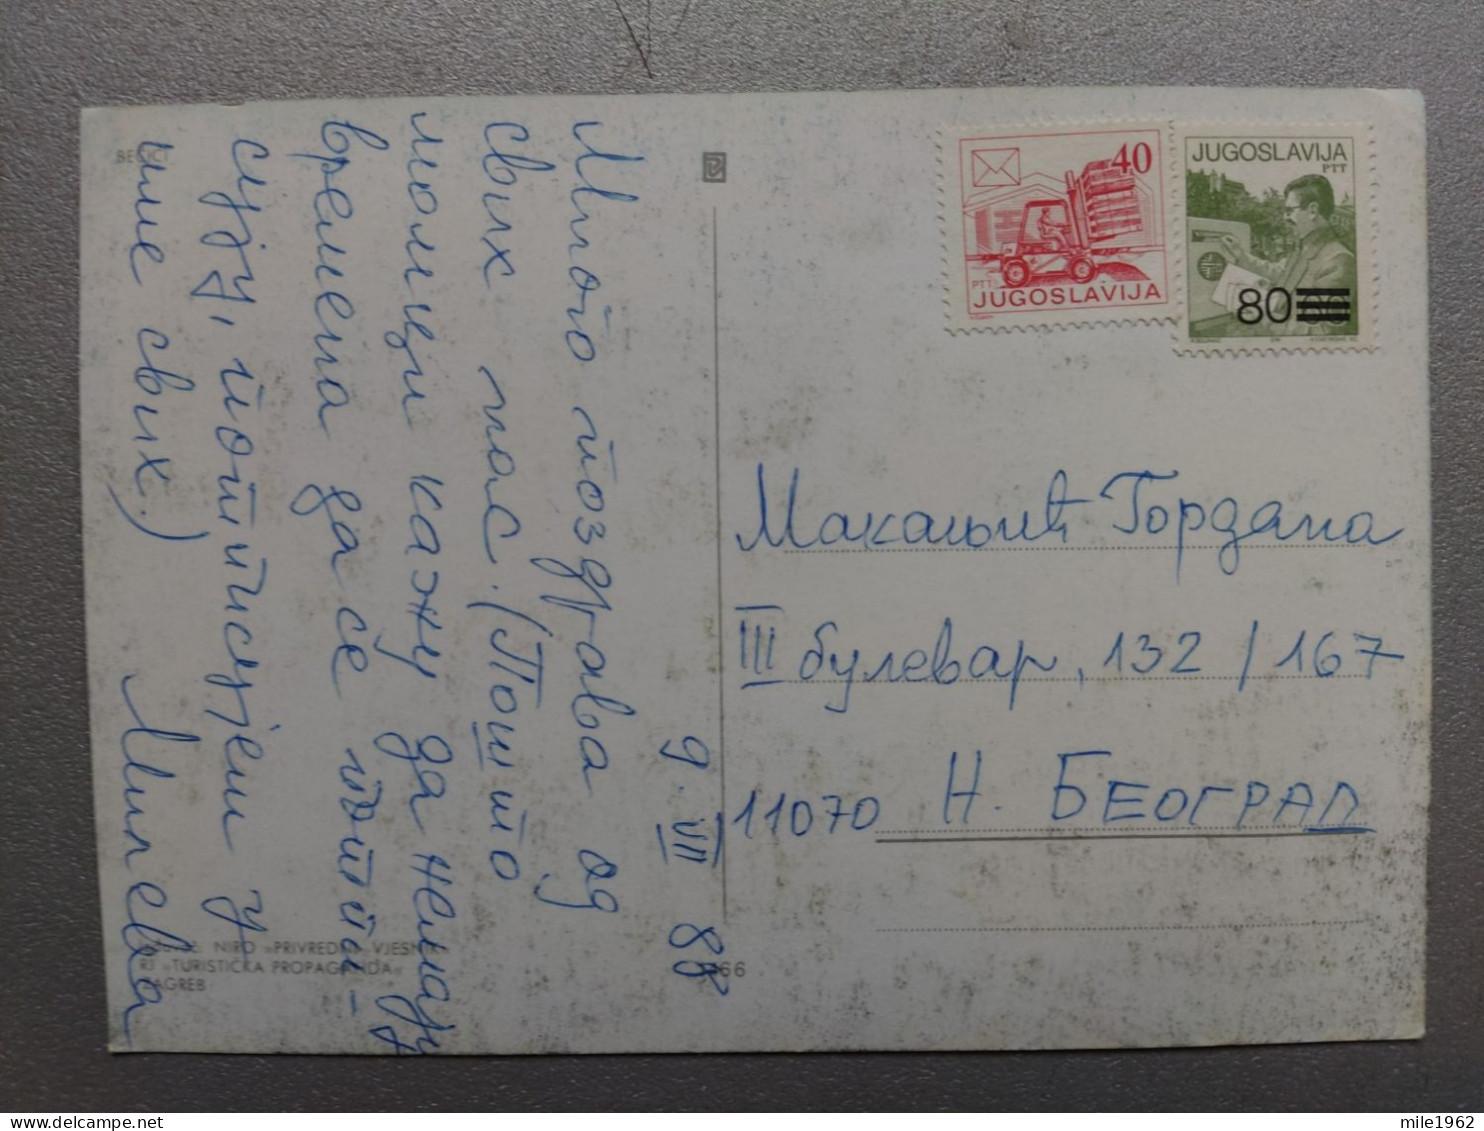 BEČIĆI
Много поздрава од
свих нас. (Пошто
молици кажу да немају
времена да се потпи-
сују, потписујем у
име свих.)
Милева
9. VII 88
40
PTT
JUGOSLAVIJA
JUGOSLAVIJA
PTT
80
Макањић Гордана
III булевар, 132 / 167
11070 Н. БЕОГРАД
NIRO »PRIVREDNI VJESNIK«
RJ »TURISTIČKA PROPAGANDA«
ZAGREB
mile1962